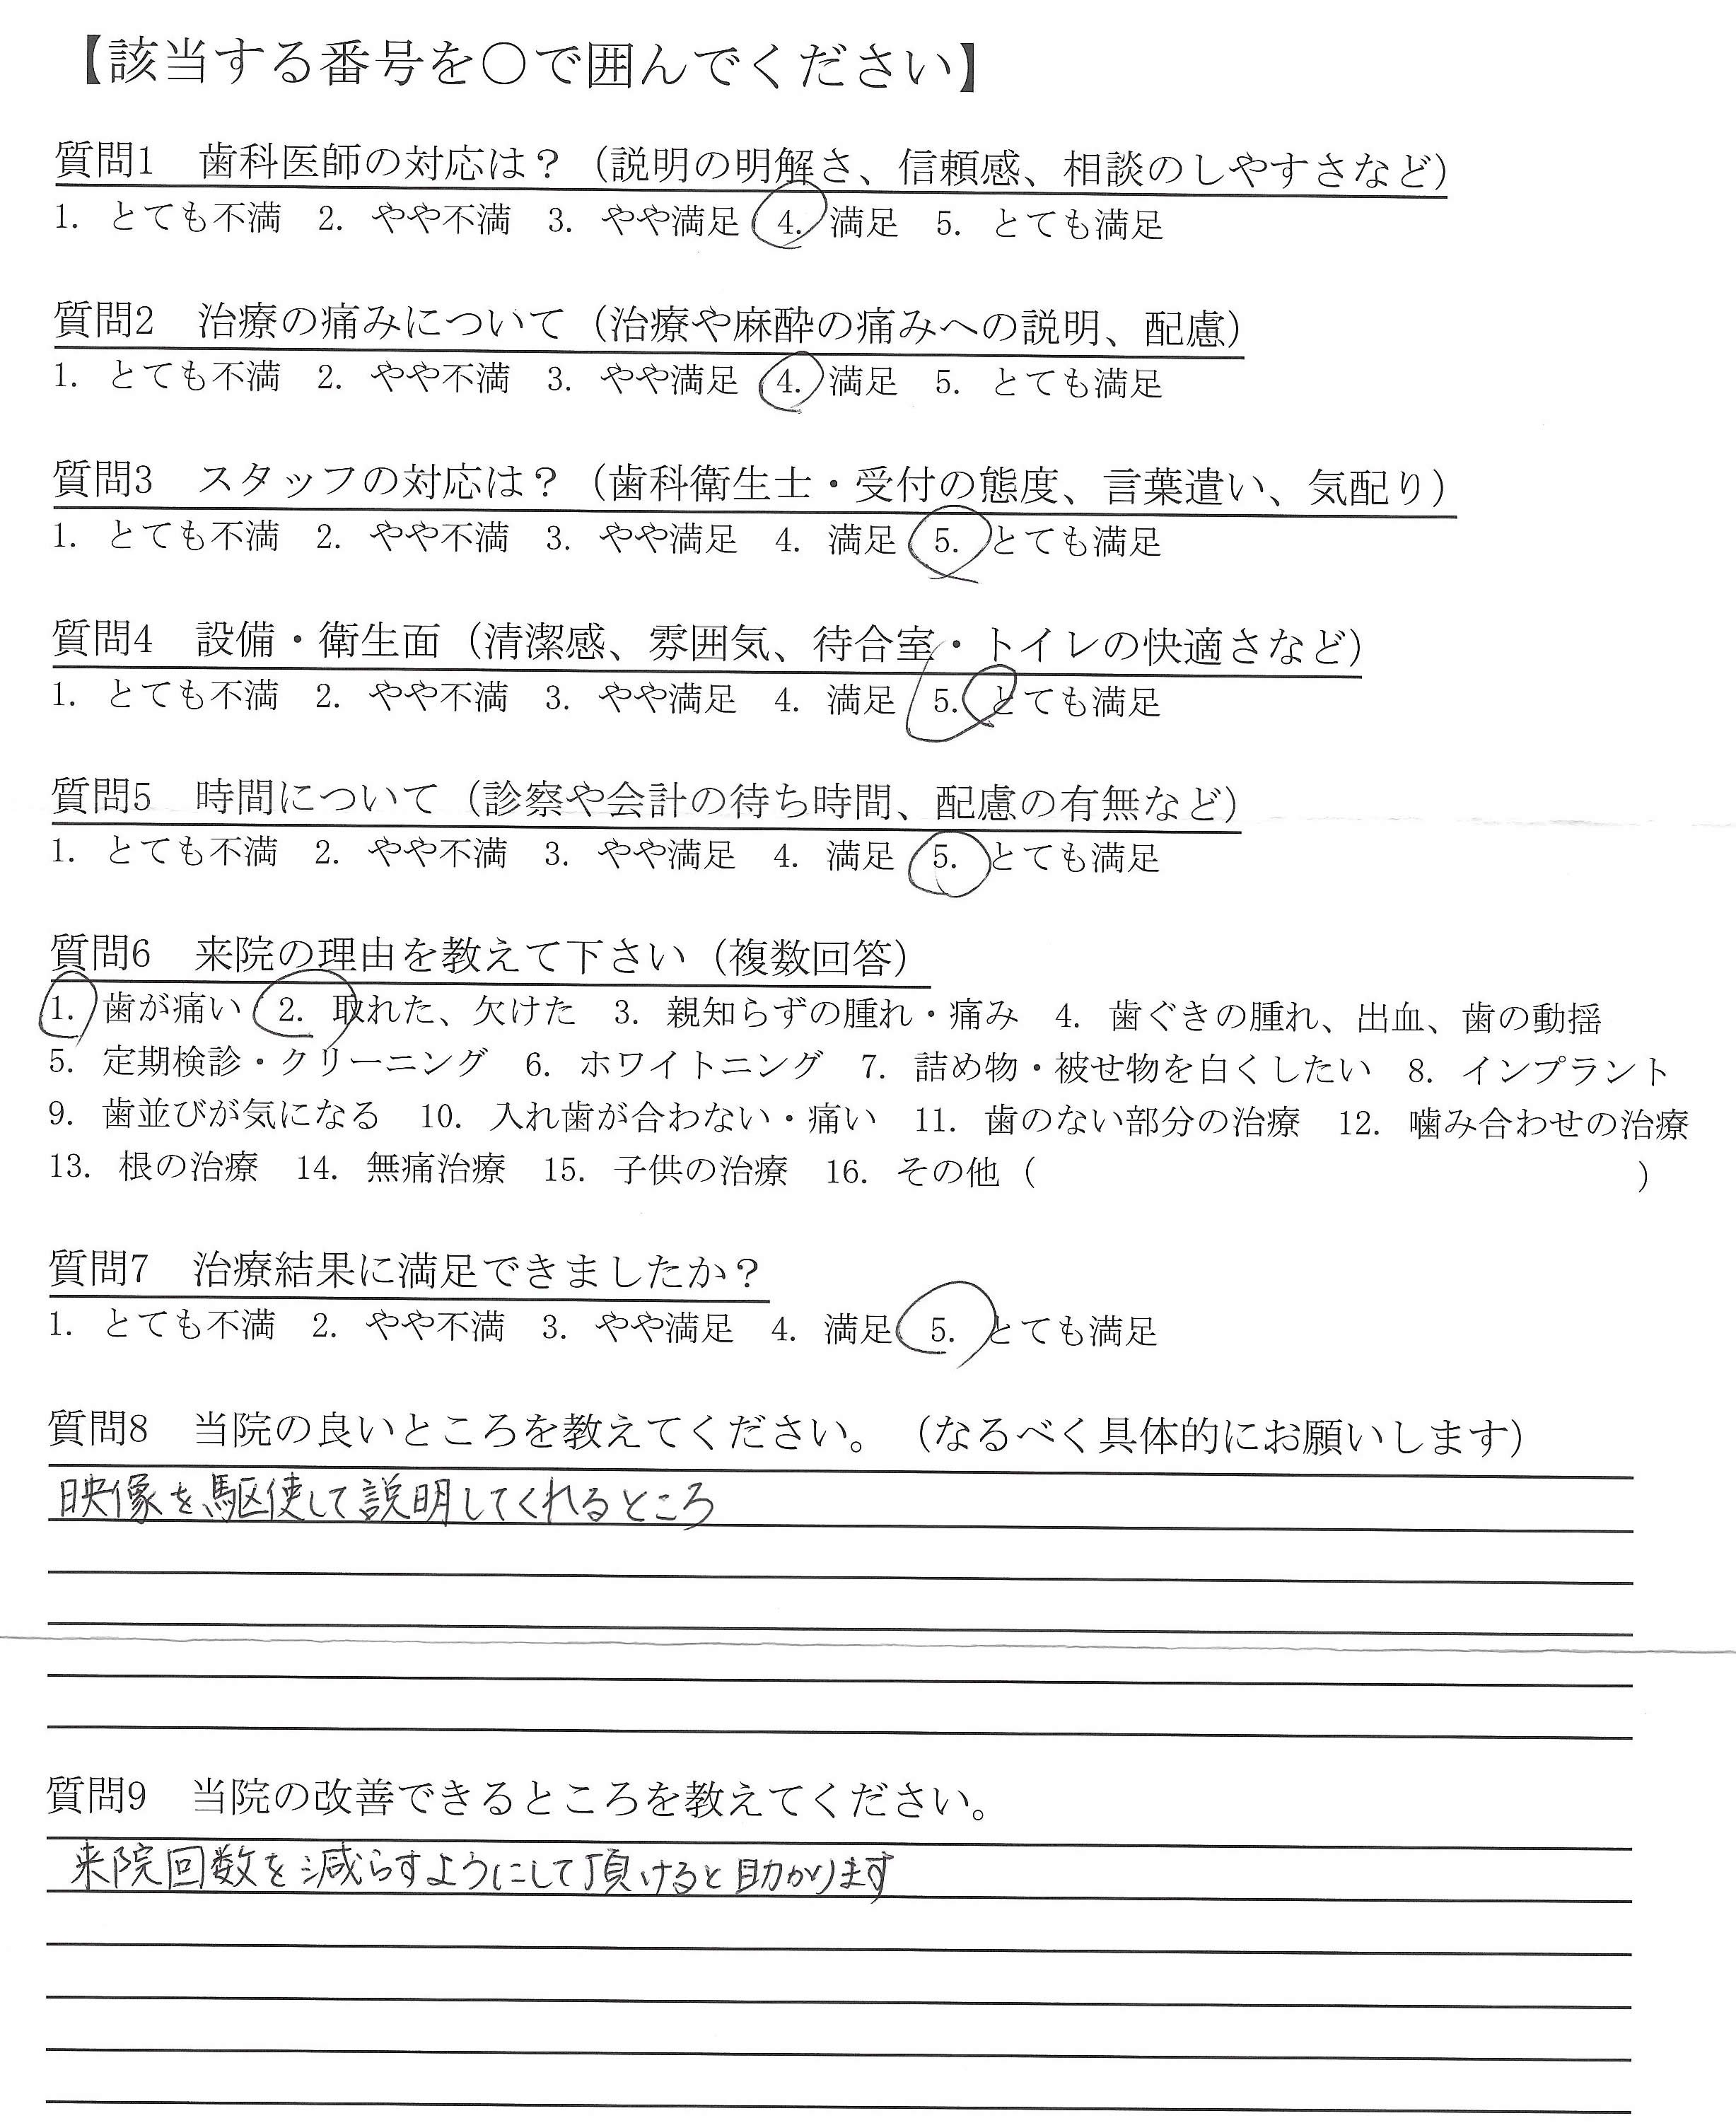 【該当する番号を○で囲んでください】
質問1　歯科医師の対応は？（説明の明解さ、信頼感、相談のしやすさなど）
1. とても不満　2. やや不満　3. やや満足　4. 満足　5. とても満足
質問2　治療の痛みについて（治療や麻酔の痛みへの説明、配慮）
1. とても不満　2. やや不満　3. やや満足　4. 満足　5. とても満足
質問3　スタッフの対応は？（歯科衛生士・受付の態度、言葉遣い、気配り）
1. とても不満　2. やや不満　3. やや満足　4. 満足　5. とても満足
質問4　設備・衛生面（清潔感、雰囲気、待合室・トイレの快適さなど）
1. とても不満　2. やや不満　3. やや満足　4. 満足　5. とても満足
質問5　時間について（診察や会計の待ち時間、配慮の有無など）
1. とても不満　2. やや不満　3. やや満足　4. 満足　5. とても満足
質問6　来院の理由を教えて下さい（複数回答）
1. 歯が痛い　2. 取れた、欠けた　3. 親知らずの腫れ・痛み　4. 歯ぐきの腫れ、出血、歯の動揺
5. 定期検診・クリーニング　6. ホワイトニング　7. 詰め物・被せ物を白くしたい　8. インプラント
9. 歯並びが気になる　10. 入れ歯が合わない・痛い　11. 歯のない部分の治療　12. 噛み合わせの治療
13. 根の治療　14. 無痛治療　15. 子供の治療　16. その他（　　　　　　　　　　　　　　　　　）
質問7　治療結果に満足できましたか？
1. とても不満　2. やや不満　3. やや満足　4. 満足　5. とても満足
質問8　当院の良いところを教えてください。（なるべく具体的にお願いします）
映像を駆使して説明してくれるところ
質問9　当院の改善できるところを教えてください。
来院回数を減らすようにして頂けると助かります